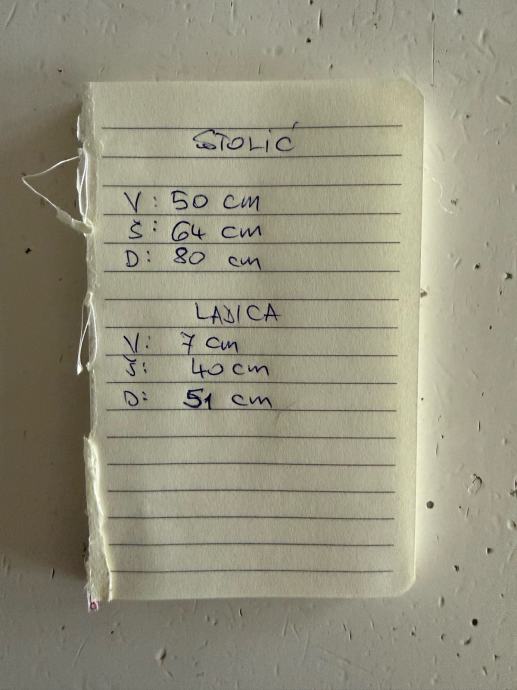 STOLIĆ
V: 50 cm
Š: 64 cm
D: 80 cm
LADICA
V: 7 cm
Š: 40 cm
D: 51 cm